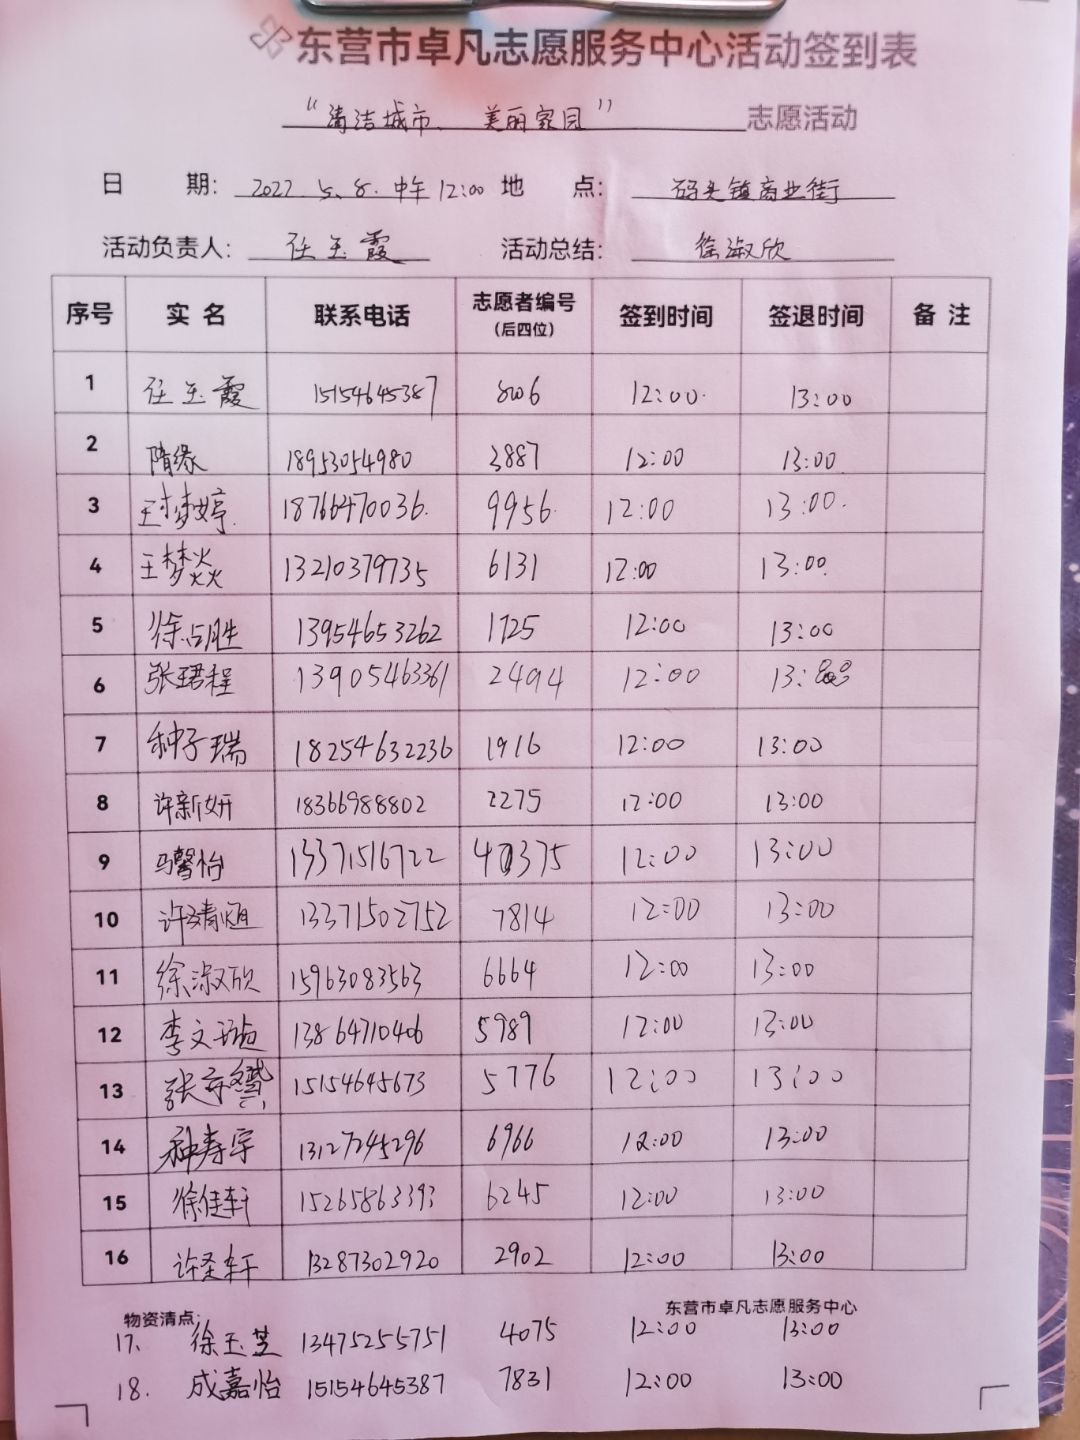 东营市卓凡志愿服务中心活动签到表
“清洁城市、美丽家园” 志愿活动
日期: 2022.5.8.中午12:00 地点: 码头镇商业街
活动负责人: 任玉霞 活动总结: 徐淑欣
序号 实名 联系电话 志愿者编号(后四位) 签到时间 签退时间 备注
1 任玉霞 15154645387 8006 12:00. 13:00
2 隋缘 18953054980 3887 12:00 13:00
3 王梦婷. 18766470036. 9956 12:00 13:00.
4 王梦焱 13210379735 6131 12:00 13:00.
5 徐占胜 13954653262 1725 12:00 13:00
6 张珺程 13905463361 2494 12:00 13:
7 种子瑞 18254632236 1916 12:00 13:00
8 许新妍 18366988802 2275 12:00 13:00
9 马馨怡 13371516722 12:00 13:00
10 13371502752 7814 12:00 13:00
11 徐淑欣 15963083563 6664 12:00 13:00
12 李文 13864710406 5989 12:00 13:00
13 张 15154645673 5776 12:00 13:00
14 种寿宇 13127245296 6966 12:00 13:00
15 徐佳轩 15265863393 6245 12:00 13:00
16 许圣轩 13287302920 2902 12:00 13:00
物资清点: 东营市卓凡志愿服务中心
17、 徐玉芝 13475255751 4075 12:00 13:00
18. 成嘉怡 15154645387 7831 12:00 13:00